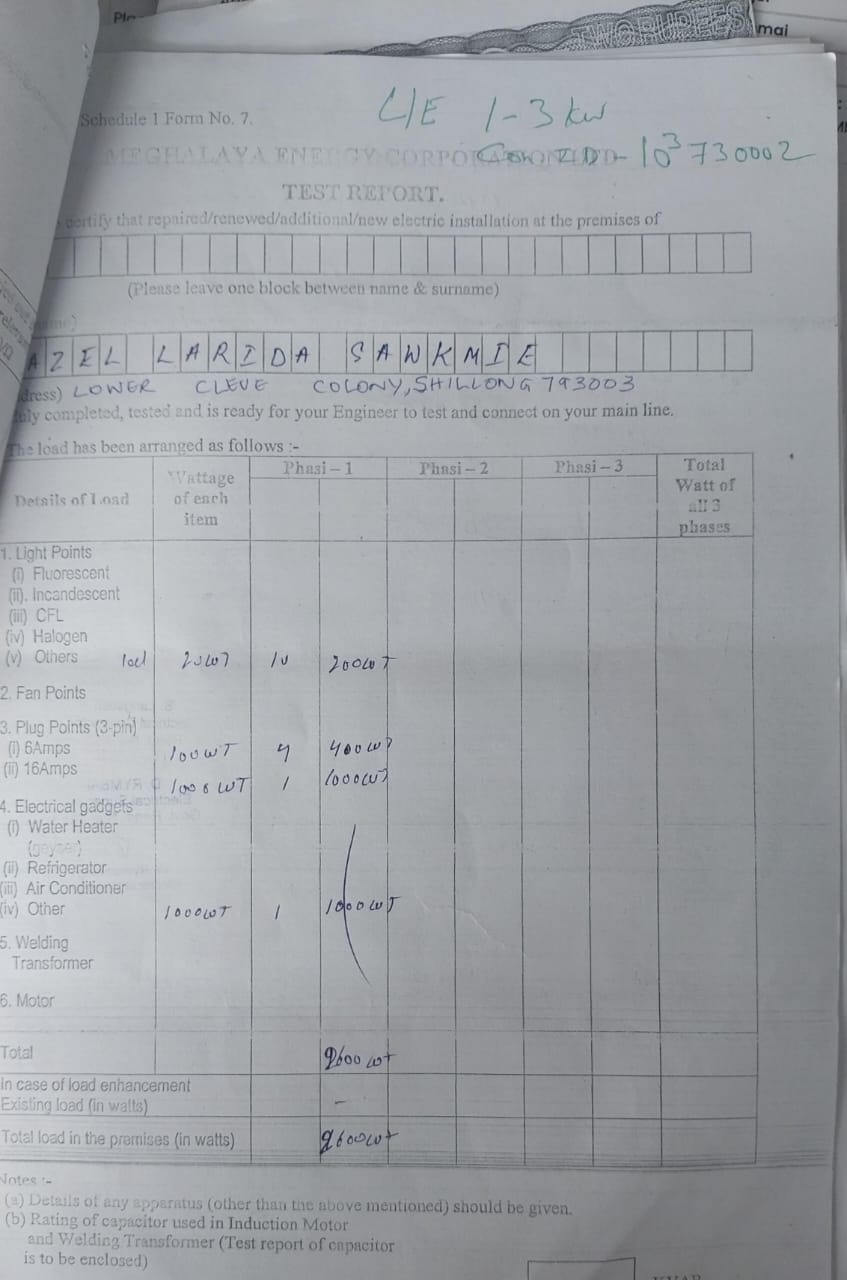 TWO RUPEES
mai
Schedule 1 Form No. 7.
L/E 1-3 kW
MEGHALAYA ENERGY CORPORATION LTD
Con ID - 103730002
TEST REPORT.
certify that repaired/renewed/additional/new electric installation at the premises of
(Please leave one block between name & surname)
AZEL LARIDA SAWKMIE
dress) LOWER CLEVE COLONY, SHILLONG 793003
uly completed, tested and is ready for your Engineer to test and connect on your main line.
The load has been arranged as follows :-
Details of Load Wattage of each item Phasi – 1 Phasi – 2 Phasi – 3 Total Watt of all 3 phases
1. Light Points
(i) Fluorescent
(ii). Incandescent
(iii) CFL
(iv) Halogen
(v) Others 20WT 10 200WT
2. Fan Points
3. Plug Points (3-pin)
(i) 6Amps 100WT 4 400WT
(ii) 16Amps 1000WT 1 1000WT
4. Electrical gadgets
(i) Water Heater
(geyser)
(ii) Refrigerator
(iii) Air Conditioner
(iv) Other 1000WT 1 1000WT
5. Welding
Transformer
6. Motor
Total 2600WT
In case of load enhancement
Existing load (in watts) -
Total load in the premises (in watts) 2600WT
Notes :-
(a) Details of any apparatus (other than the above mentioned) should be given.
(b) Rating of capacitor used in Induction Motor
and Welding Transformer (Test report of capacitor
is to be enclosed)